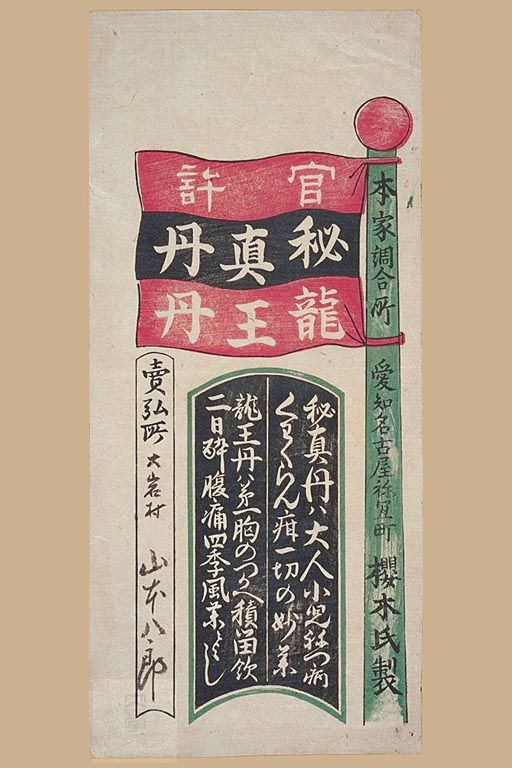 官許
秘真丹
龍王丹
本家調合所 愛知名古屋祢宜町 櫻木氏製
秘真丹ハ大人小児社つ病
くわくらん疳一切の妙薬
龍王丹ハ第一胸のつかへ積留飲
二日酔腹痛四季風薬とよし
賣弘所 大岩村 山本八郎